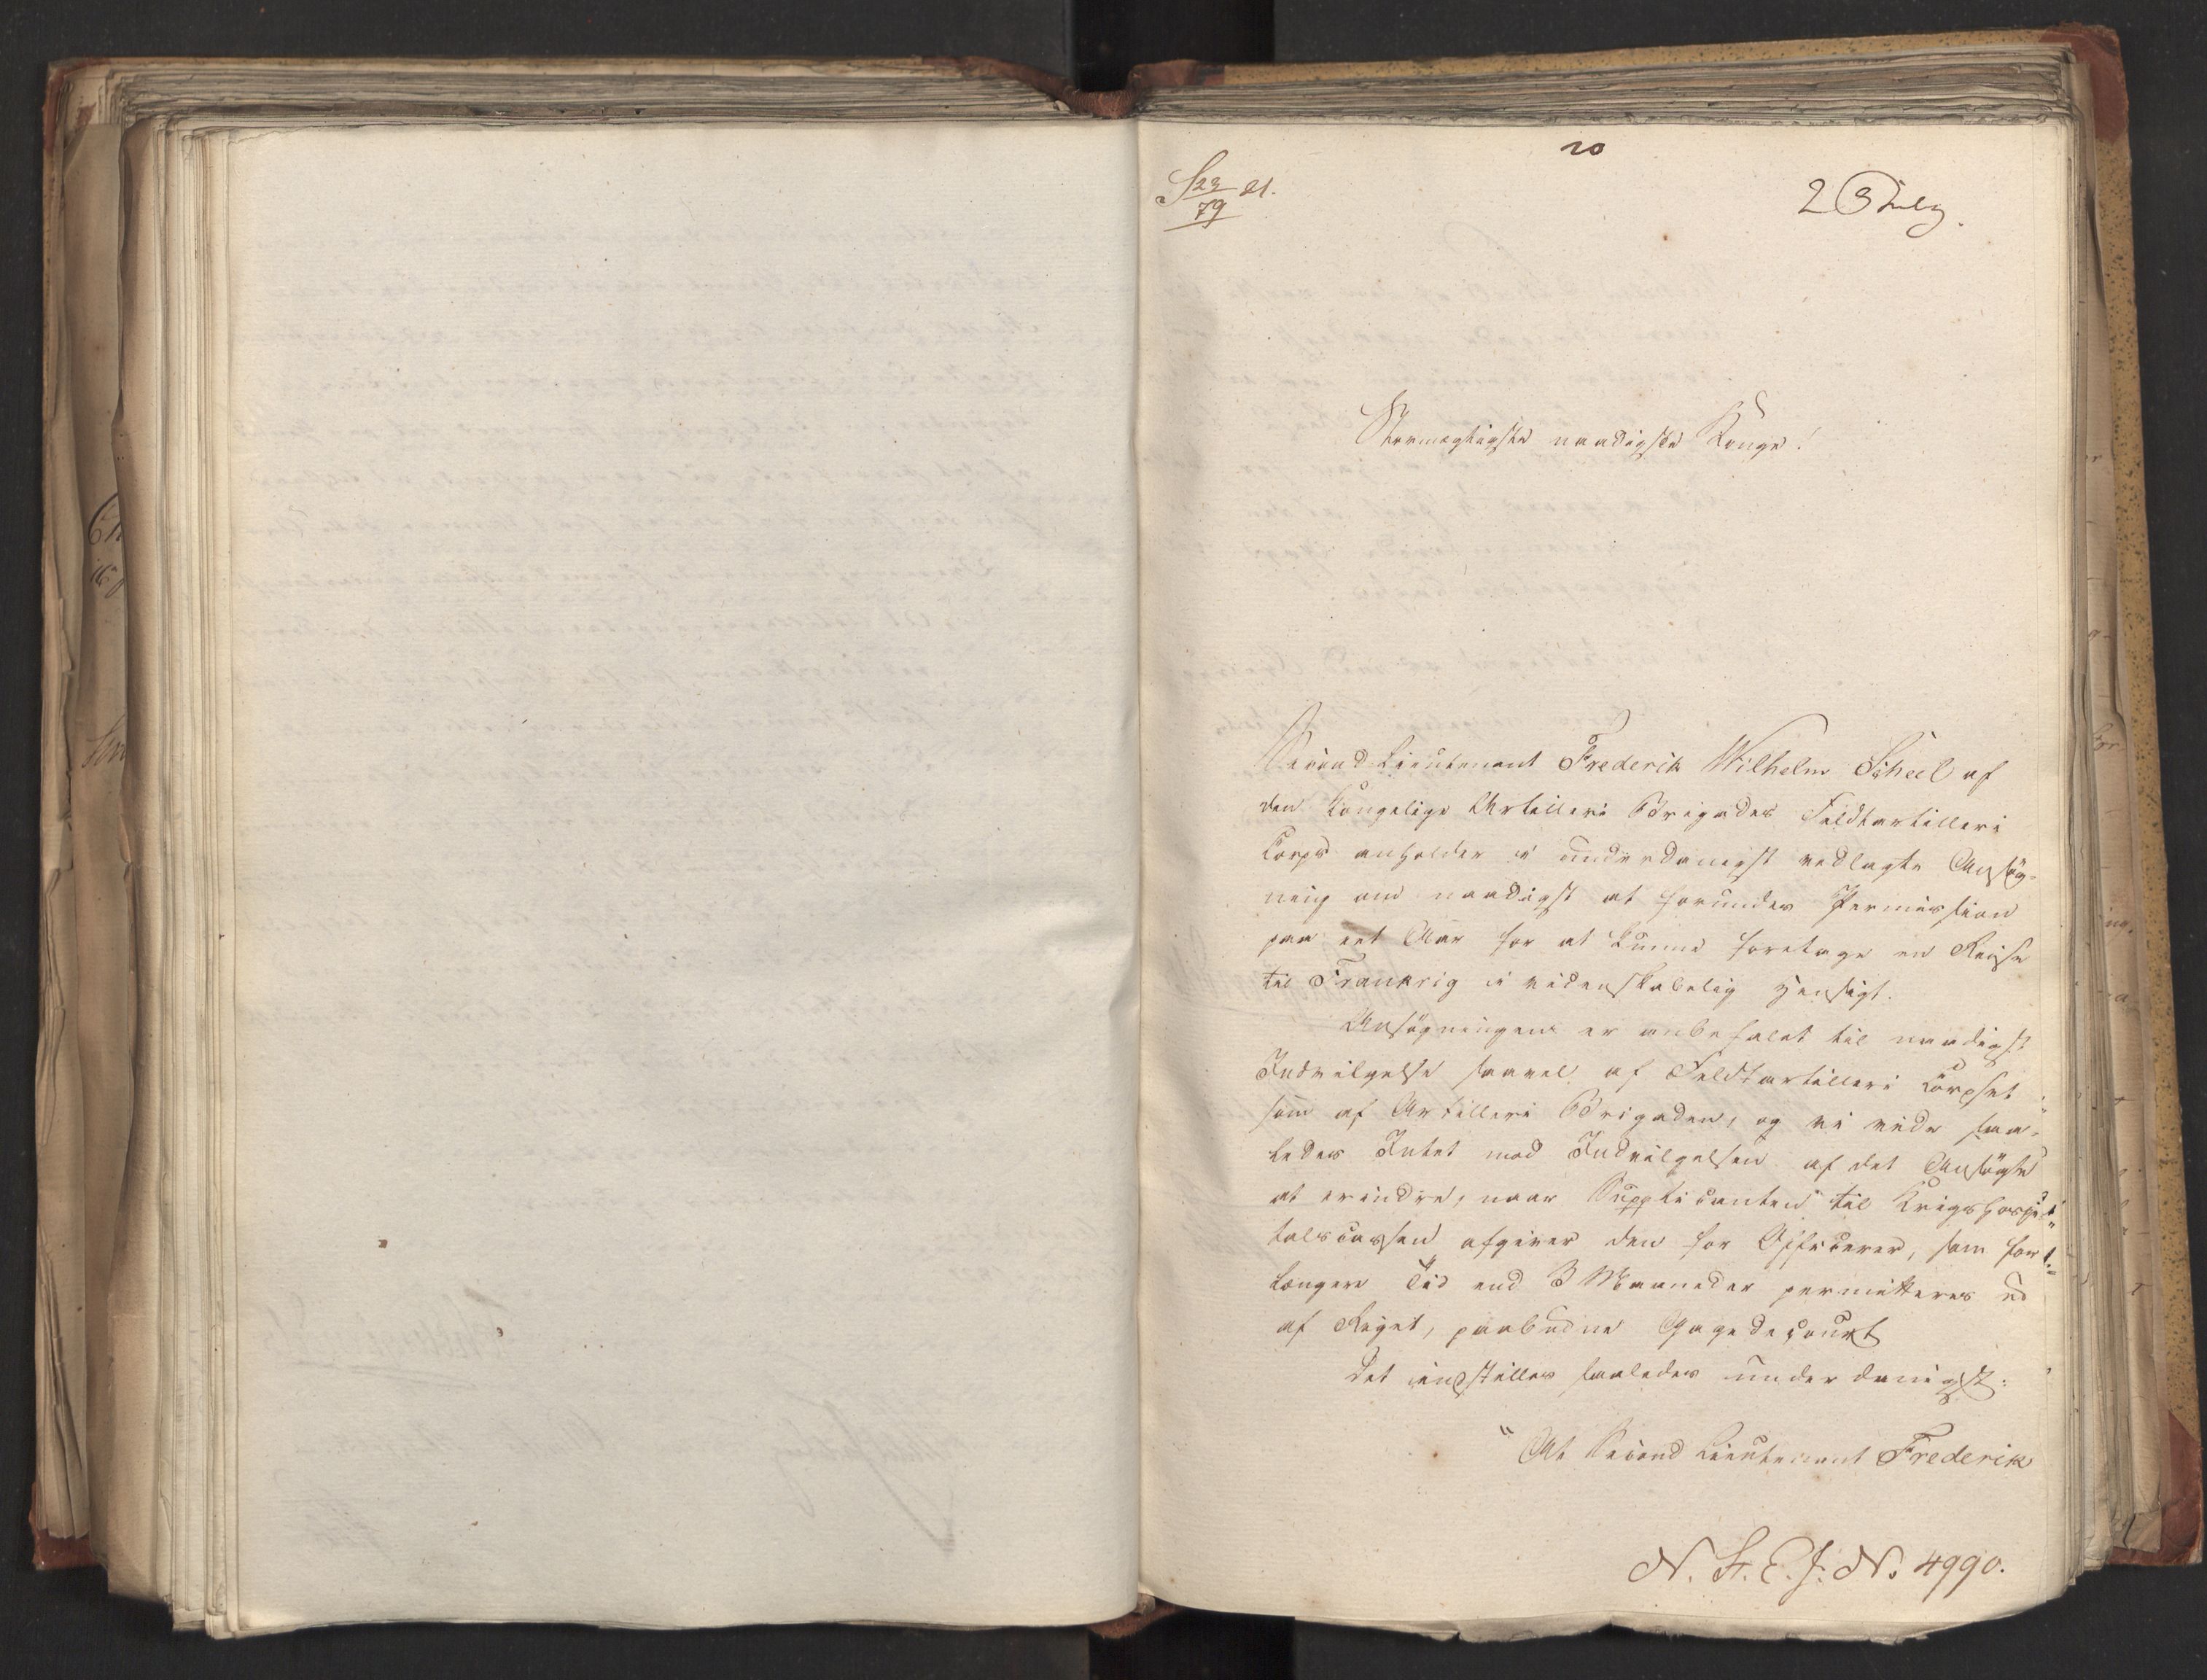 20
S 23/79 21.
Stormægtigste naadigste Konge!
Second-Lieutenant Frederik Wilhelm Scheel af
den Kongelige Artilleri Brigades Feldtartilleri
Corps anholder i underdanigst vedlagte Ansøg-
ning om naadigst at forundes Permission
paa eet Aar for at kunne foretage en Reise
til Frankrig i videnskabelig Hensigt.
Ansøgningen er anbefalet til naadigst
Indvilgelse saavel af Feldtartilleri Corpset
som af Artilleri Brigaden, og vi vide saa-
ledes Intet mod Indvilgelsen af det Ansøgte
at erindre, naar Supplicanten til Krigshospi-
talscassen afgiver den for Officerer, som for
længere Tid end 3 Maaneder permitteres ud
af Riget, paabudne Gagedecourt
Det indstilles saaledes underdanigst:
"At Second Lieutenant Frederik
N. 4990.